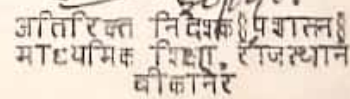 अतिरिक्त निदेशक§प्रशासन§
माध्यमिक शिक्षा, राजस्थान
बीकानेर